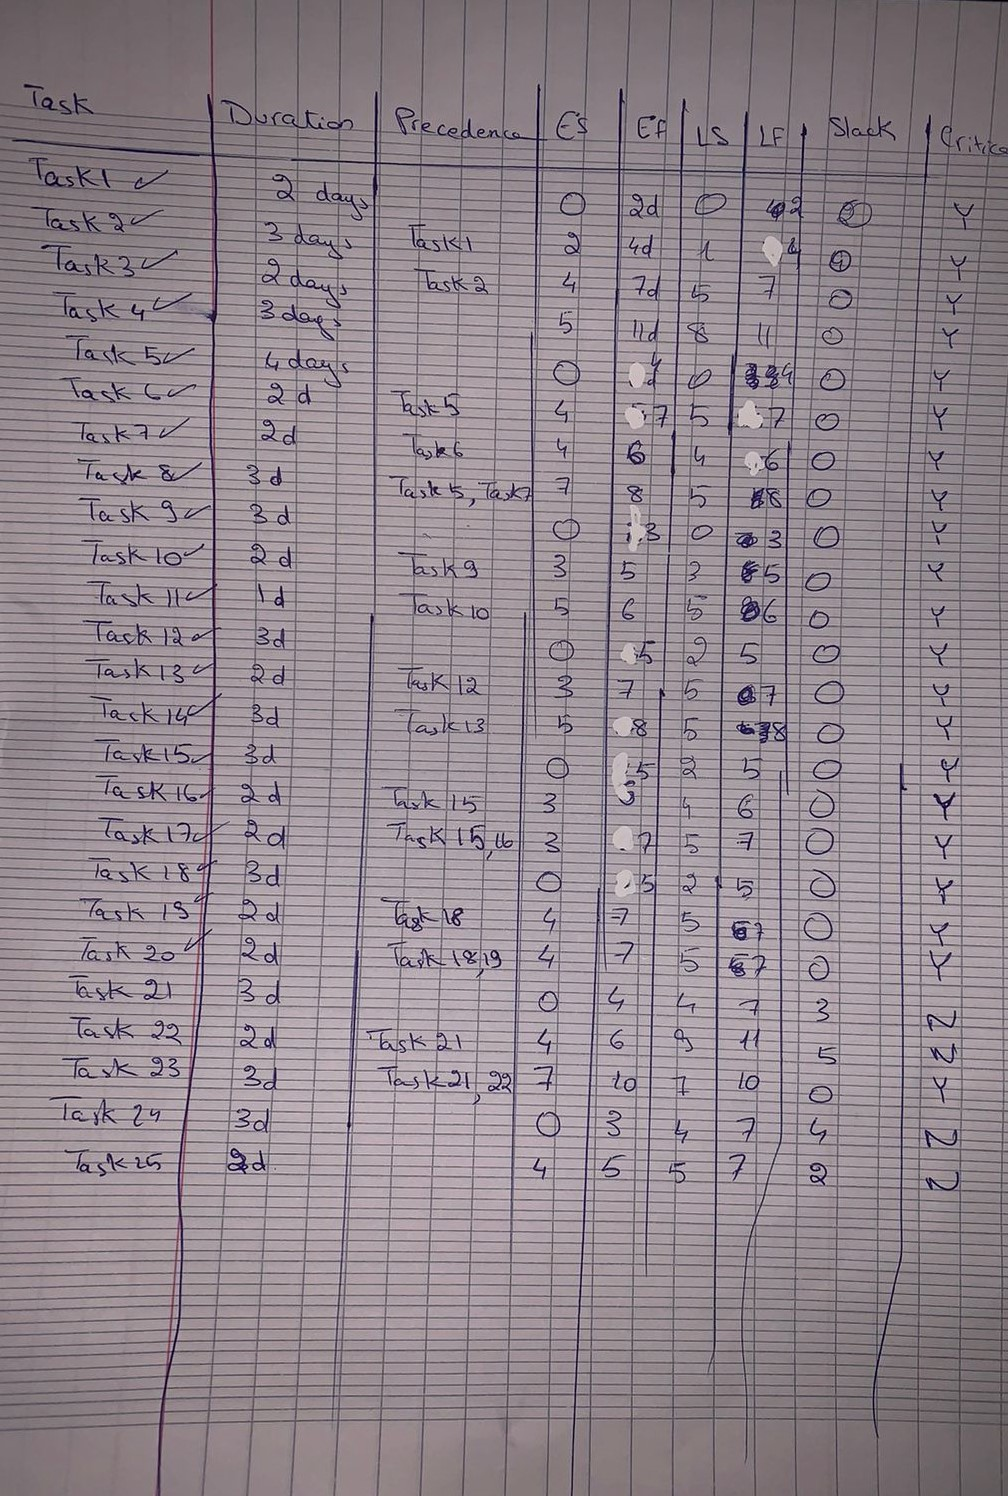 Task Duration Precedence ES Ef LS LF Slack Critica
Task1 ✓ 2 days 0 2d 0 2 Y
Task 2 ✓ 3 days Task1 2 4d 1 4 Y
Task3 ✓ 2 days Task 2 4 7d 5 7 0 Y
Task 4 ✓ 3 days 5 11d 8 11 0 Y
Task 5 ✓ 4 days 0 4 0 4 0 Y
Task 6 ✓ 2 d Task 5 4 7 5 7 0 Y
Task 7 ✓ 2d Task 6 4 6 4 6 0 Y
Task 8 ✓ 3 d Task 5, Task7 7 8 5 8 0 Y
Task 9 ✓ 3 d 0 3 0 3 0 Y
Task 10 ✓ 2 d Task 9 3 5 3 5 0 Y
Task 11 ✓ 1d Task 10 5 6 5 6 0 Y
Task 12 ✓ 3d 0 5 2 5 0 Y
Task 13 ✓ 2d Task 12 3 7 5 7 0 Y
Task 14 ✓ 3d Task 13 5 8 5 8 0 Y
Task15 ✓ 3d 0 5 2 5 0 Y
Task 16 ✓ 2 d Task 15 3 5 4 6 0 Y
Task 17 ✓ 2d Task 15,16 3 7 5 7 0 Y
Task 18 ✓ 3d 0 5 2 5 0 Y
Task 19 ✓ 2d Task 18 4 7 5 7 0 Y
Task 20 ✓ 2d Task 18,19 4 7 5 7 0 Y
Task 21 3 d 0 4 4 7 3 N
Task 22 2d Task 21 4 6 9 11 5 N
Task 23 3d Task 21, 22 7 10 7 10 0 Y
Task 24 3d 0 3 4 7 4 N
Task 25 2d. 4 5 5 7 2 N